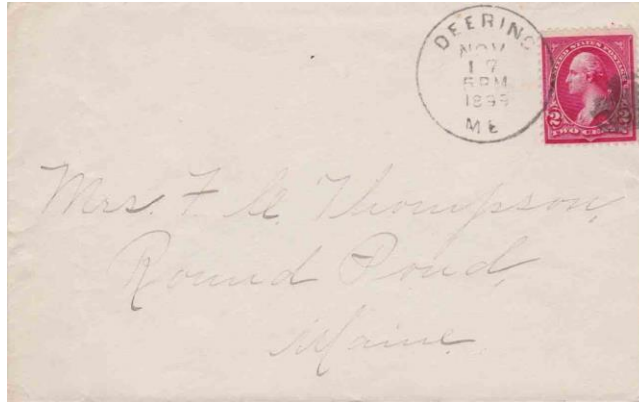 DEERING
NOV
17
5 PM
ME
UNITED STATES POSTAGE
2 2
TWO CENTS
Mrs. F. Thompson,
Round Pond,
Maine.